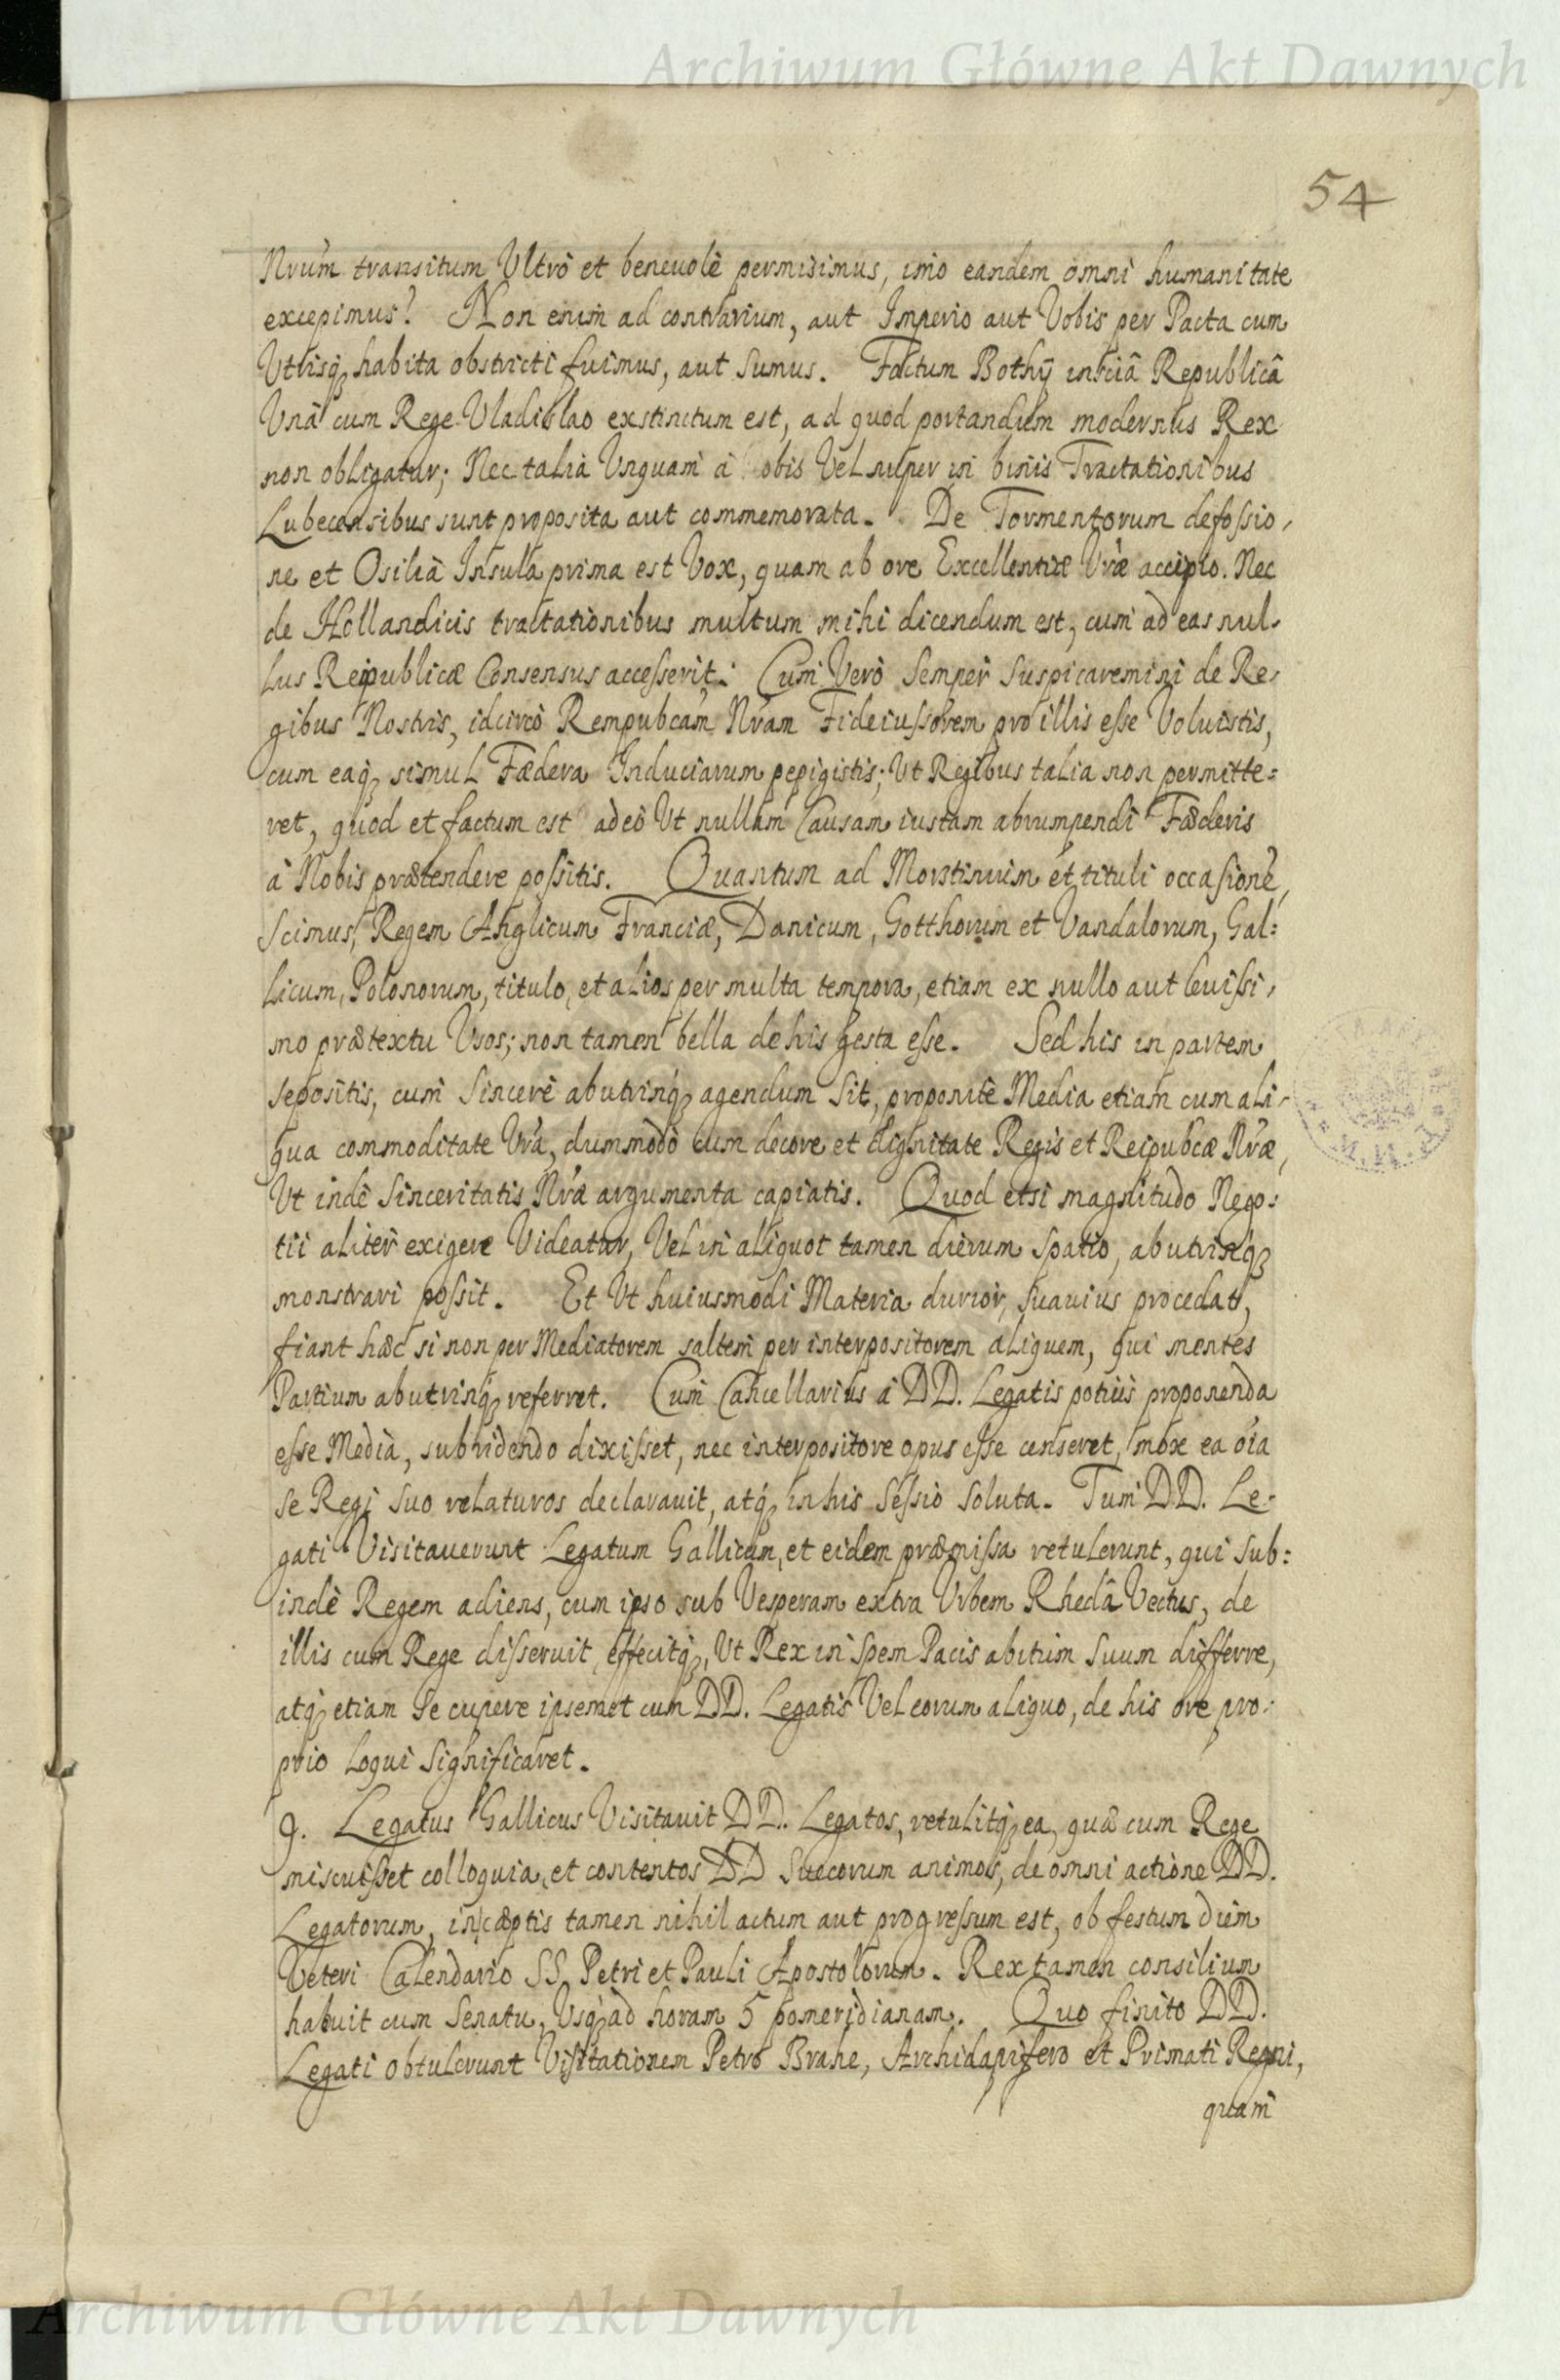 Archiwum Główne Akt Dawnych
54
Nrum transitum Ultrò et beneuolè permisimus, imò eandem omni humanitate
excepimus? Non enim ad contrarium, aut Imperio aut Vobis per Pacta cum
Utrisq habita obstricti fuimus, aut sumus. Factum Bothÿ insciâ Republicâ
Unà cum Rege Vladislao exstinctum est, ad quod portandum modernus Rex
non obligatur; Nec talia Unquam à obis Vel nuper in binis Tractationibus
Lubecensibus sunt proposita aut commemorata. De Tormentorum defossio,
ne et Osiliâ Insulâ prima est Vox, quam ab ore Excellentiæ Vræ accipio. Nec
de Hollandicis tractationibus multum mihi dicendum est, cum ad eas nul,
lus Reipublicæ Consensus accesserit: Cum Verò Semper Suspicaremini de Re,
gibus Nostris, idcircò Rempubcam Nram Fideiussorem pro illis esse Voluistis,
cum eaq simul Fædera Induciarum pepigistis; Ut Regibus talia non permitte=
ret, quod et factum est adeò Ut nullam Causam iustam abrumpendi Fæderis
à Nobis prætendere possitis. Quantum ad Monstinium et tituli occasionē,
Scimus, Regem Anglicum Franciæ, Danicum, Gotthorum et Vandalorum, Gal:
licum, Polonorum, titulo, et alios per multa tempora, etiam ex nullo aut leuissi,
mo prætextu Usos; non tamen bella de his gesta esse. Sed his in partem
sepositis, cum Sincerè abutrinq agendum sit, proponite Media etiam cum ali,
qua commoditate Vrâ, dummodo cum decore et dignitate Regis et Reipubcæ Nræ,
Ut indè Sinceritatis Nræ argumenta capiatis. Quod etsi magnitudo Nego:
tii aliter exigere Videatur, Vel in aliquot tamen dierum spatio, abutrinq
monstrari possit. Et Ut huiusmodi Materia durior, suauius procedat,
fiant hæc si non per Mediatorem saltem per interpositorem aliquem, qui mentes
Partium abutrinq referret. Cum Cancellarius à DD. Legatis potiùs proponenda
esse Media, subridendo dixisset, nec interpositore opus esse censeret, mox ea oia
se Regi Suo relaturos declarauit, atq in his Sessio Soluta. Tum DD. Le-
gati Visitauerunt Legatum Gallicum, et eidem præmissa retulerunt, qui sub:
indè Regem adiens, cum ipso sub Vesperam extra Urbem Rhedâ Vectus, de
illis cum Rege disseruit, effecitq, Ut Rex in spem Pacis abitum Suum differre,
atq etiam se cupere ipsemet cum DD. Legatis Vel eorum aliquo, de his ore pro:
prio loqui Significaret.
9. Legatus Gallicus Visitauit DD. Legatos, retulitq ea, quæ cum Rege
miscuisset colloquia, et contentos DD Suecorum animos, de omni actione DD.
Legatorum, incæptis tamen nihil actum aut progressum est, ob festum diem
Veteri Calendario SS. Petri et Pauli Apostolorum. Rex tamen consilium
habuit cum Senatu, Usq ad horam 5 pomeridianam. Quo finito DD.
Legati obtulerunt Visitationem Petro Brahe, Archidapifero et Primati Regni,
quam
Archiwum Główne Akt Dawnych